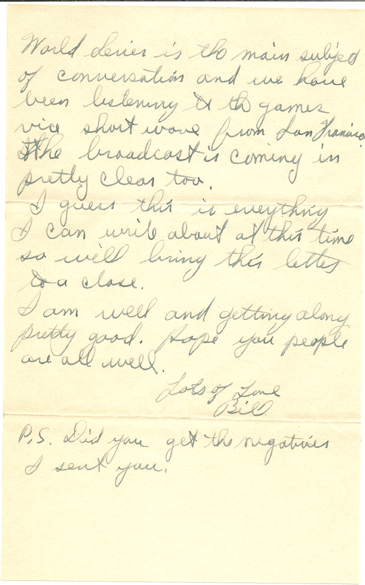 World Series is the main subject
of conversation and we have
been listening to the games
vice short wave from San Francisco
The broadcast is coming in
pretty clear too.
I guess this is everything
I can write about at this time
so will bring this letter
to a close.
I am well and getting along
pretty good. Hope you people
are all well.
Lots of Love
Bill
P.S. Did you get the negatives
I sent you.